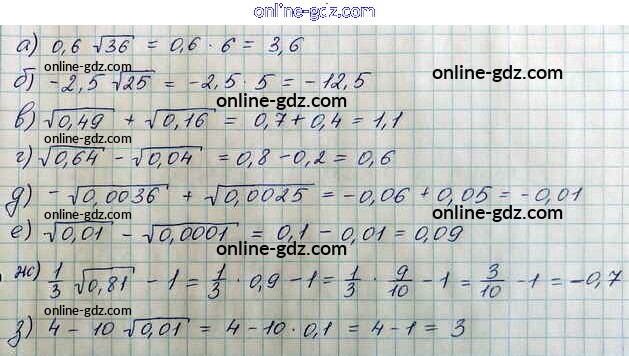 online-gdz.com
а) 0,6 √36 = 0,6 · 6 = 3,6
online-gdz.com
б) -2,5 √25 = -2,5 · 5 = -12,5
online-gdz.com
online-gdz.com
в) √0,49 + √0,16 = 0,7 + 0,4 = 1,1
online-gdz.com
г) √0,64 - √0,04 = 0,8 - 0,2 = 0,6
online-gdz.com
д) -√0,0036 + √0,0025 = -0,06 + 0,05 = -0,01
online-gdz.com online-gdz.com
е) √0,01 - √0,0001 = 0,1 - 0,01 = 0,09
online-gdz.com
ж) 1/3 √0,81 - 1 = 1/3 · 0,9 - 1 = 1/3 · 9/10 - 1 = 3/10 - 1 = -0,7
online-gdz.com online-gdz.com
з) 4 - 10 √0,01 = 4 - 10 · 0,1 = 4 - 1 = 3
online-gdz.com